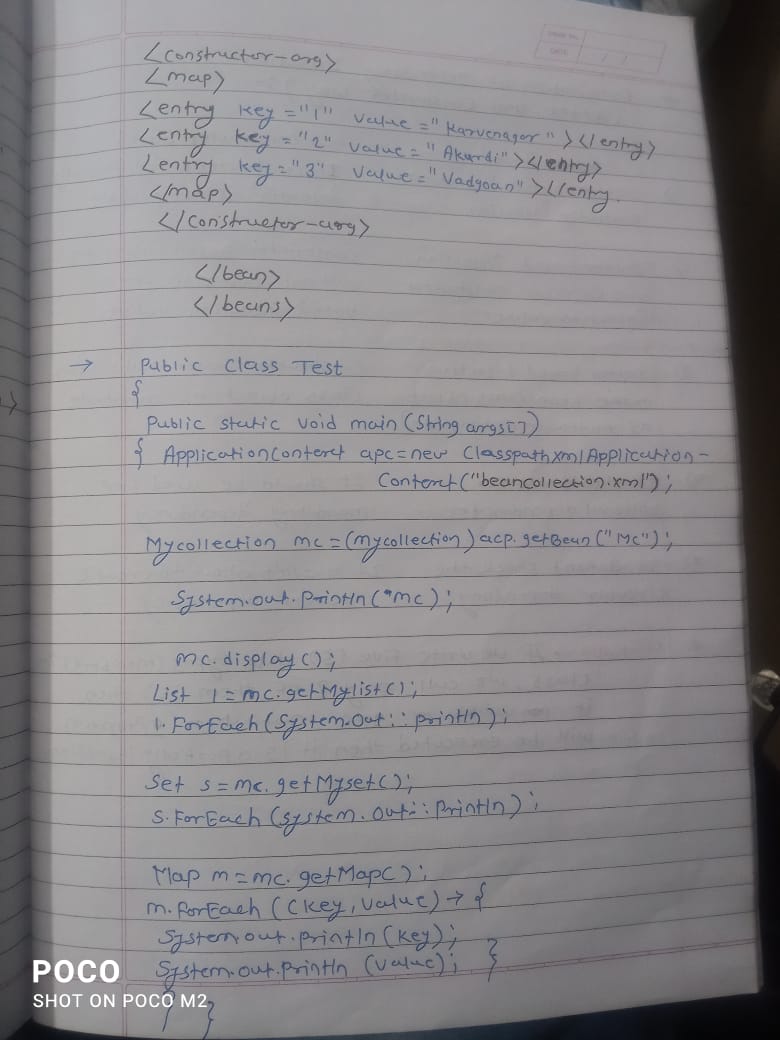 <constructor-arg>
<map>
<entry key ="1" value ="Karvenagar"></entry>
<entry key ="2" value ="Akurdi"></entry>
<entry key ="3" value ="Vadgoan"></entry.
</map>
</constructor-arg>
</bean>
</beans>
→ Public class Test
{
Public static void main (String args[])
{ ApplicationContext apc = new ClasspathxmlApplication-
Context("beancollection.xml");
Mycollection mc = (mycollection) acp.getBean ("Mc");
System.out.println("mc);
mc.display();
List l = mc.getMylist();
l.ForEach(System.Out::println);
Set s = mc.getMyset();
S.ForEach (system.out::println);
Map m = mc.getMap();
m.forEach ((key, value) → {
System.out.println (key);
System.out.println (value); }
} }
POCO
SHOT ON POCO M2